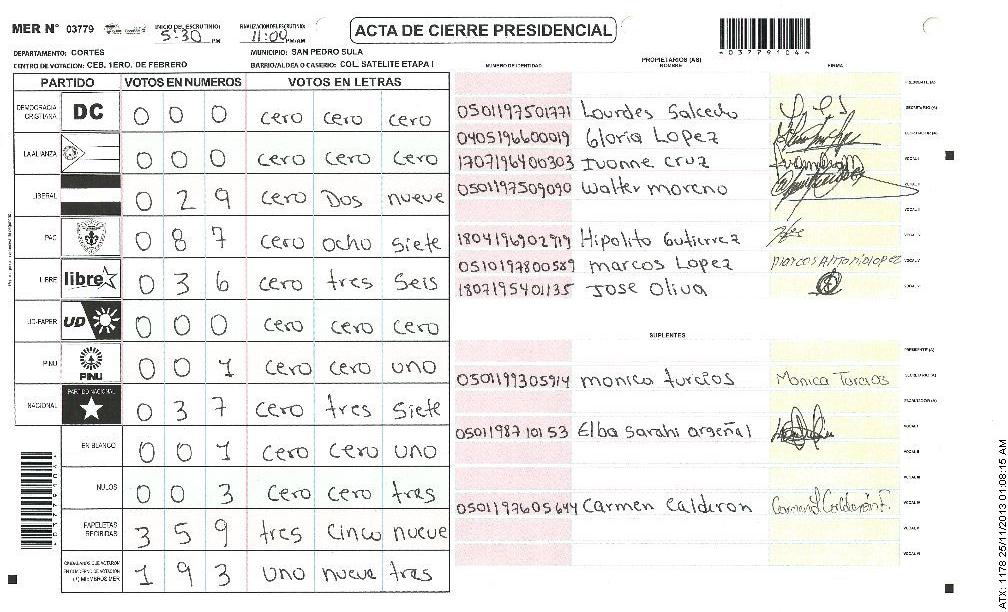 MER N° 03779 INICIO DEL ESCRUTINIO: 5:30 PM FINALIZACION DEL ESCRUTINIO: 11:00 PM/AM
ACTA DE CIERRE PRESIDENCIAL
*03779104*
DEPARTAMENTO: CORTES MUNICIPIO: SAN PEDRO SULA
CENTRO DE VOTACION: CEB. 1ERO. DE FEBRERO BARRIO/ALDEA O CASERIO: COL. SATELITE ETAPA I
PARTIDO VOTOS EN NUMEROS VOTOS EN LETRAS
DEMOCRACIA CRISTIANA DC 0 0 0 cero cero cero
LA ALIANZA 0 0 0 cero cero cero
LIBERAL 0 2 9 cero Dos nueve
PAC 0 8 7 cero ocho siete
LIBRE libre 0 3 6 cero tres seis
UD-FAPER UD 0 0 0 cero cero cero
PINU PINU 0 0 1 cero cero uno
NACIONAL PARTIDO NACIONAL 0 3 7 cero tres siete
EN BLANCO 0 0 1 cero cero uno
NULOS 0 0 3 cero cero tres
PAPELETAS RECIBIDAS 3 5 9 tres cinco nueve
CIUDADANOS QUE VOTARON EN CUADERNO DE VOTACION (+) MIEMBROS MER 1 9 3 uno nueve tres
PROPIETARIOS (AS)
NUMERO DE IDENTIDAD NOMBRE FIRMA
PRESIDENTE (A)
0501197501771 Lourdes Salcedo SECRETARIO (A)
0405196600019 Gloria Lopez ESCRUTADOR (A)
1707196400303 Ivonne Cruz VOCAL I
0501197509090 Walter moreno VOCAL II
VOCAL III
1804196902919 Hipolito Gutierrez VOCAL IV
0510197800589 marcos Lopez marcos Antonio lopez VOCAL V
1807195401135 Jose Oliva VOCAL VI
SUPLENTES
PRESIDENTE (A)
0501199305914 monica turcios Monica Turcios SECRETARIO (A)
ESCRUTADOR (A)
0501198710153 Elba Sarahi argeñal VOCAL I
VOCAL II
VOCAL III
0501197605644 Carmen Calderon Carmen Calderón F. VOCAL IV
VOCAL V
VOCAL VI
ATX: 1178 25/11/2013 01:08:15 AM